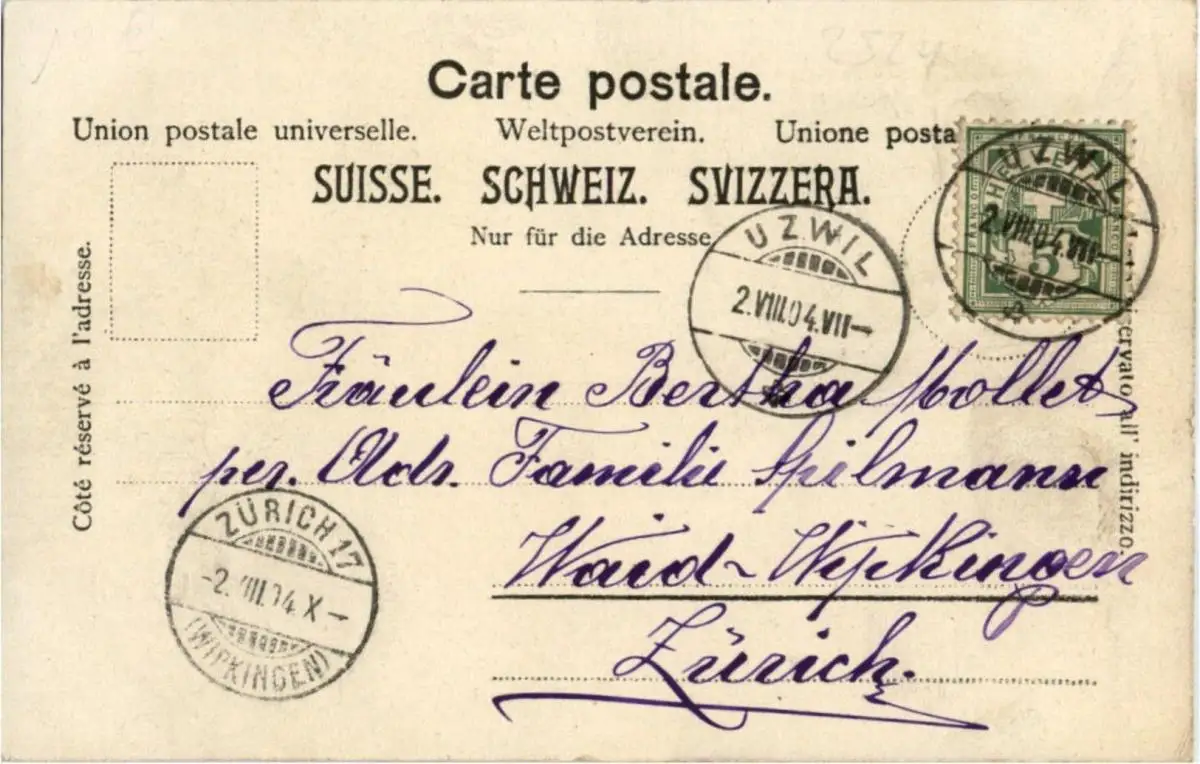 2524
Carte postale.
Union postale universelle. Weltpostverein. Unione posta
SUISSE. SCHWEIZ. SVIZZERA.
Nur für die Adresse
Côté réservé à l'adresse.
servato all' indirizzo.
HELVE
FRANCO
5
UZWIL
2.VIII.04.VII—
UZWIL
2.VIII.04.VII—
Fräulein Bertha Mollet
per. Adr. Familie Spilmann
Waid-Wipkingen
Zürich.
ZÜRICH 17
-2.VIII.04.X—
(WIPKINGEN)